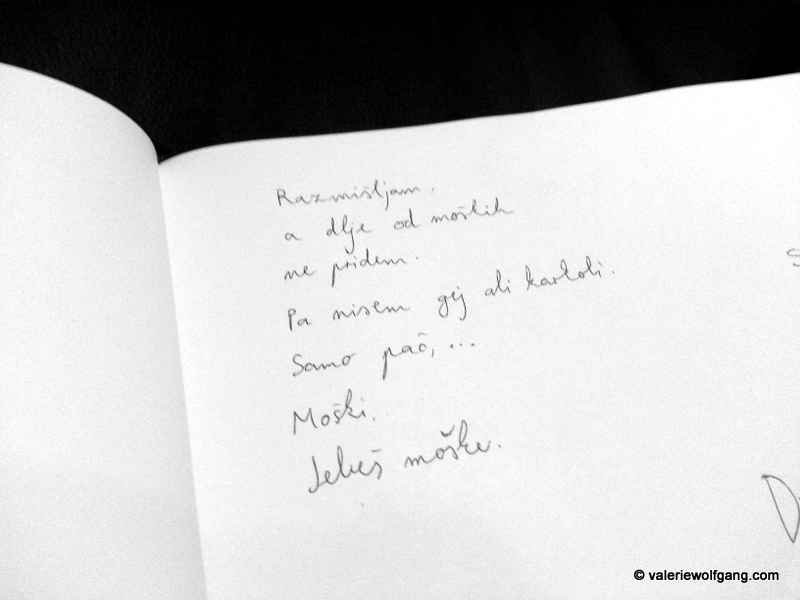 Razmišljam,
a dlje od moških
ne pridem.
Pa nisem gej ali karkoli.
Samo pač, ...
Moški.
Jebeš moške.
© valeriewolfgang.com